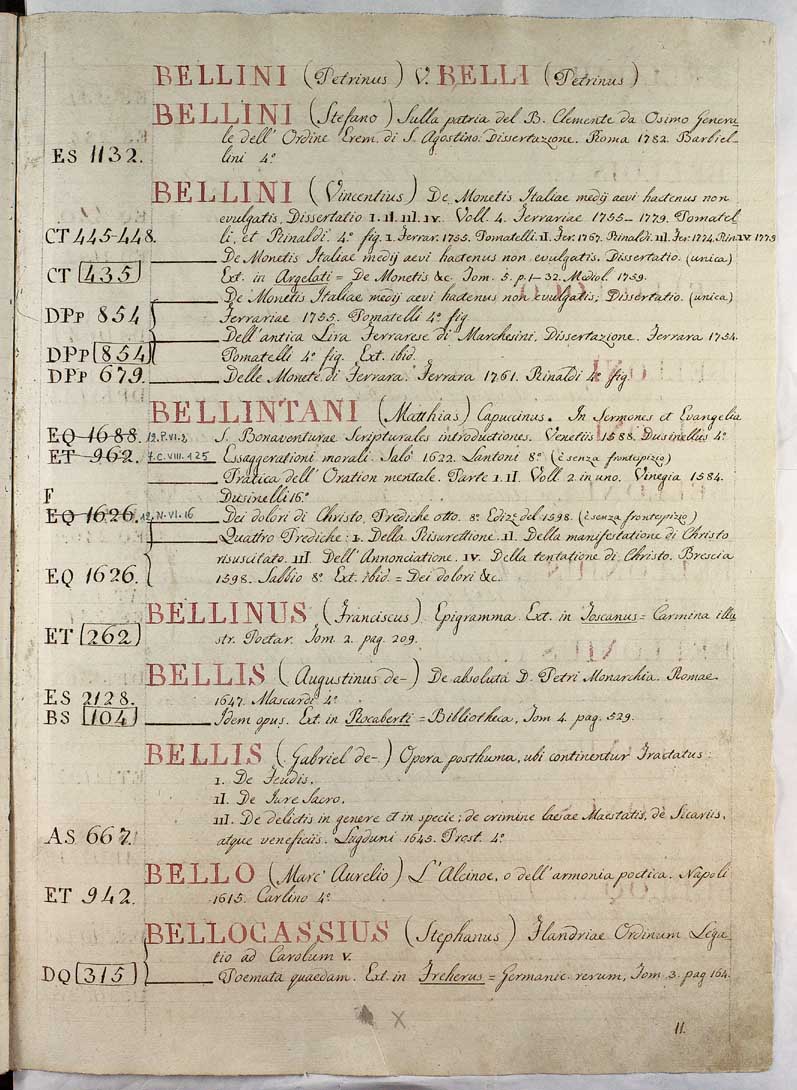 BELLINI (Petrinus) V. BELLI (Petrinus)
BELLINI (Stefano) Sulla patria del B. Clemente da Osimo Genera-
le dell' Ordine Erem. di S. Agostino. Dissertazione. Roma 1782. Barbiel-
ES 1132. lini 4°
BELLINI (Vincentius) De Monetis Italiae medij aevi hactenus non
evulgatis, Dissertatio I. II. III. IV. Voll. 4. Ferrariae 1755-1779. Pomatel-
CT 445-448. li, et Rinaldi. 4° fig. I. Ferrar. 1755. Pomatelli. II. Fer. 1767. Rinaldi. III. Fer. 1774. Rin. IV. 1779
De Monetis Italiae medij aevi hactenus non evulgatis. Dissertatio. (unica)
CT 435 Ext. in Argelati = De Monetis &c. Tom. 5. p. 1-32. Mediol. 1759.
De Monetis Italiae medij aevi hactenus non evulgatis; Dissertatio. (unica)
DPp 854 Ferrariae 1755. Pomatelli 4° fig.
Dell'antica Lira Ferrarese di Marchesini. Dissertazione. Ferrara 1754.
DPp 854 Pomatelli 4° fig. Ext. ibid.
DPp 679. Delle Monete di Ferrara. Ferrara 1761. Rinaldi 4° fig.
BELLINTANI (Matthias) Capuccinus. In Sermones et Evangelia
EQ 1688. 12.P.VI.8 S. Bonaventurae Scripturales introductiones. Venetiis 1588. Dusinellus 4°
ET 962. 7.C.VIII.125 Essaggerationi morali. Salò 1622. Lantoni 8° (è senza frontepizio)
Pratica dell' Oration mentale. Parte I. II. Voll. 2. in uno. Vinegia 1584.
F Dusinelli 16°
EQ 1626. 12.N.VI.16 Dei dolori di Christo, Prediche otto. 8° Ediz. del 1598. (è senza frontepizio)
Quattro Prediche: I. Della Risurettione. II. Della manifestatione di Christo
risuscitato. III. Dell' Annonciatione. IV. Della tentatione di Christo. Brescia
EQ 1626. 1598. Sabbio 8° Ext. ibid. = Dei dolori &c.
BELLINUS (Franciscus) Epigramma. Ext. in Toscanus = Carmina illu
ET 262 str. Poetar. Tom. 2. pag. 209.
BELLIS (Augustinus de-) De absoluta D. Petri Monarchia. Romae
ES 2128. 1647. Mascardi 4°
BS 104 Idem opus. Ext. in Rocaberti = Bibliotheca, Tom. 4. pag. 529.
BELLIS (Gabriel de-) Opera posthuma, ubi continentur Tractatus:
I. De Feudis.
II. De Iure Sacro.
III. De delictis in genere et in specie; de crimine laesae Maestatis, de Sicariis,
AS 667. atque veneficiis. Lugduni 1645. Prost. 4°
BELLO (Marc' Aurelio) L'Alcinoe, o dell'armonia poetica. Napoli
ET 942. 1615. Carlino 4°
BELLOCASSIUS (Stephanus) Flandriae Ordinum Lega-
tio ad Carolum V.
DQ 315 Poemata quaedam. Ext. in Freherus = Germanic. rerum, Tom. 3. pag. 164.
X
11.